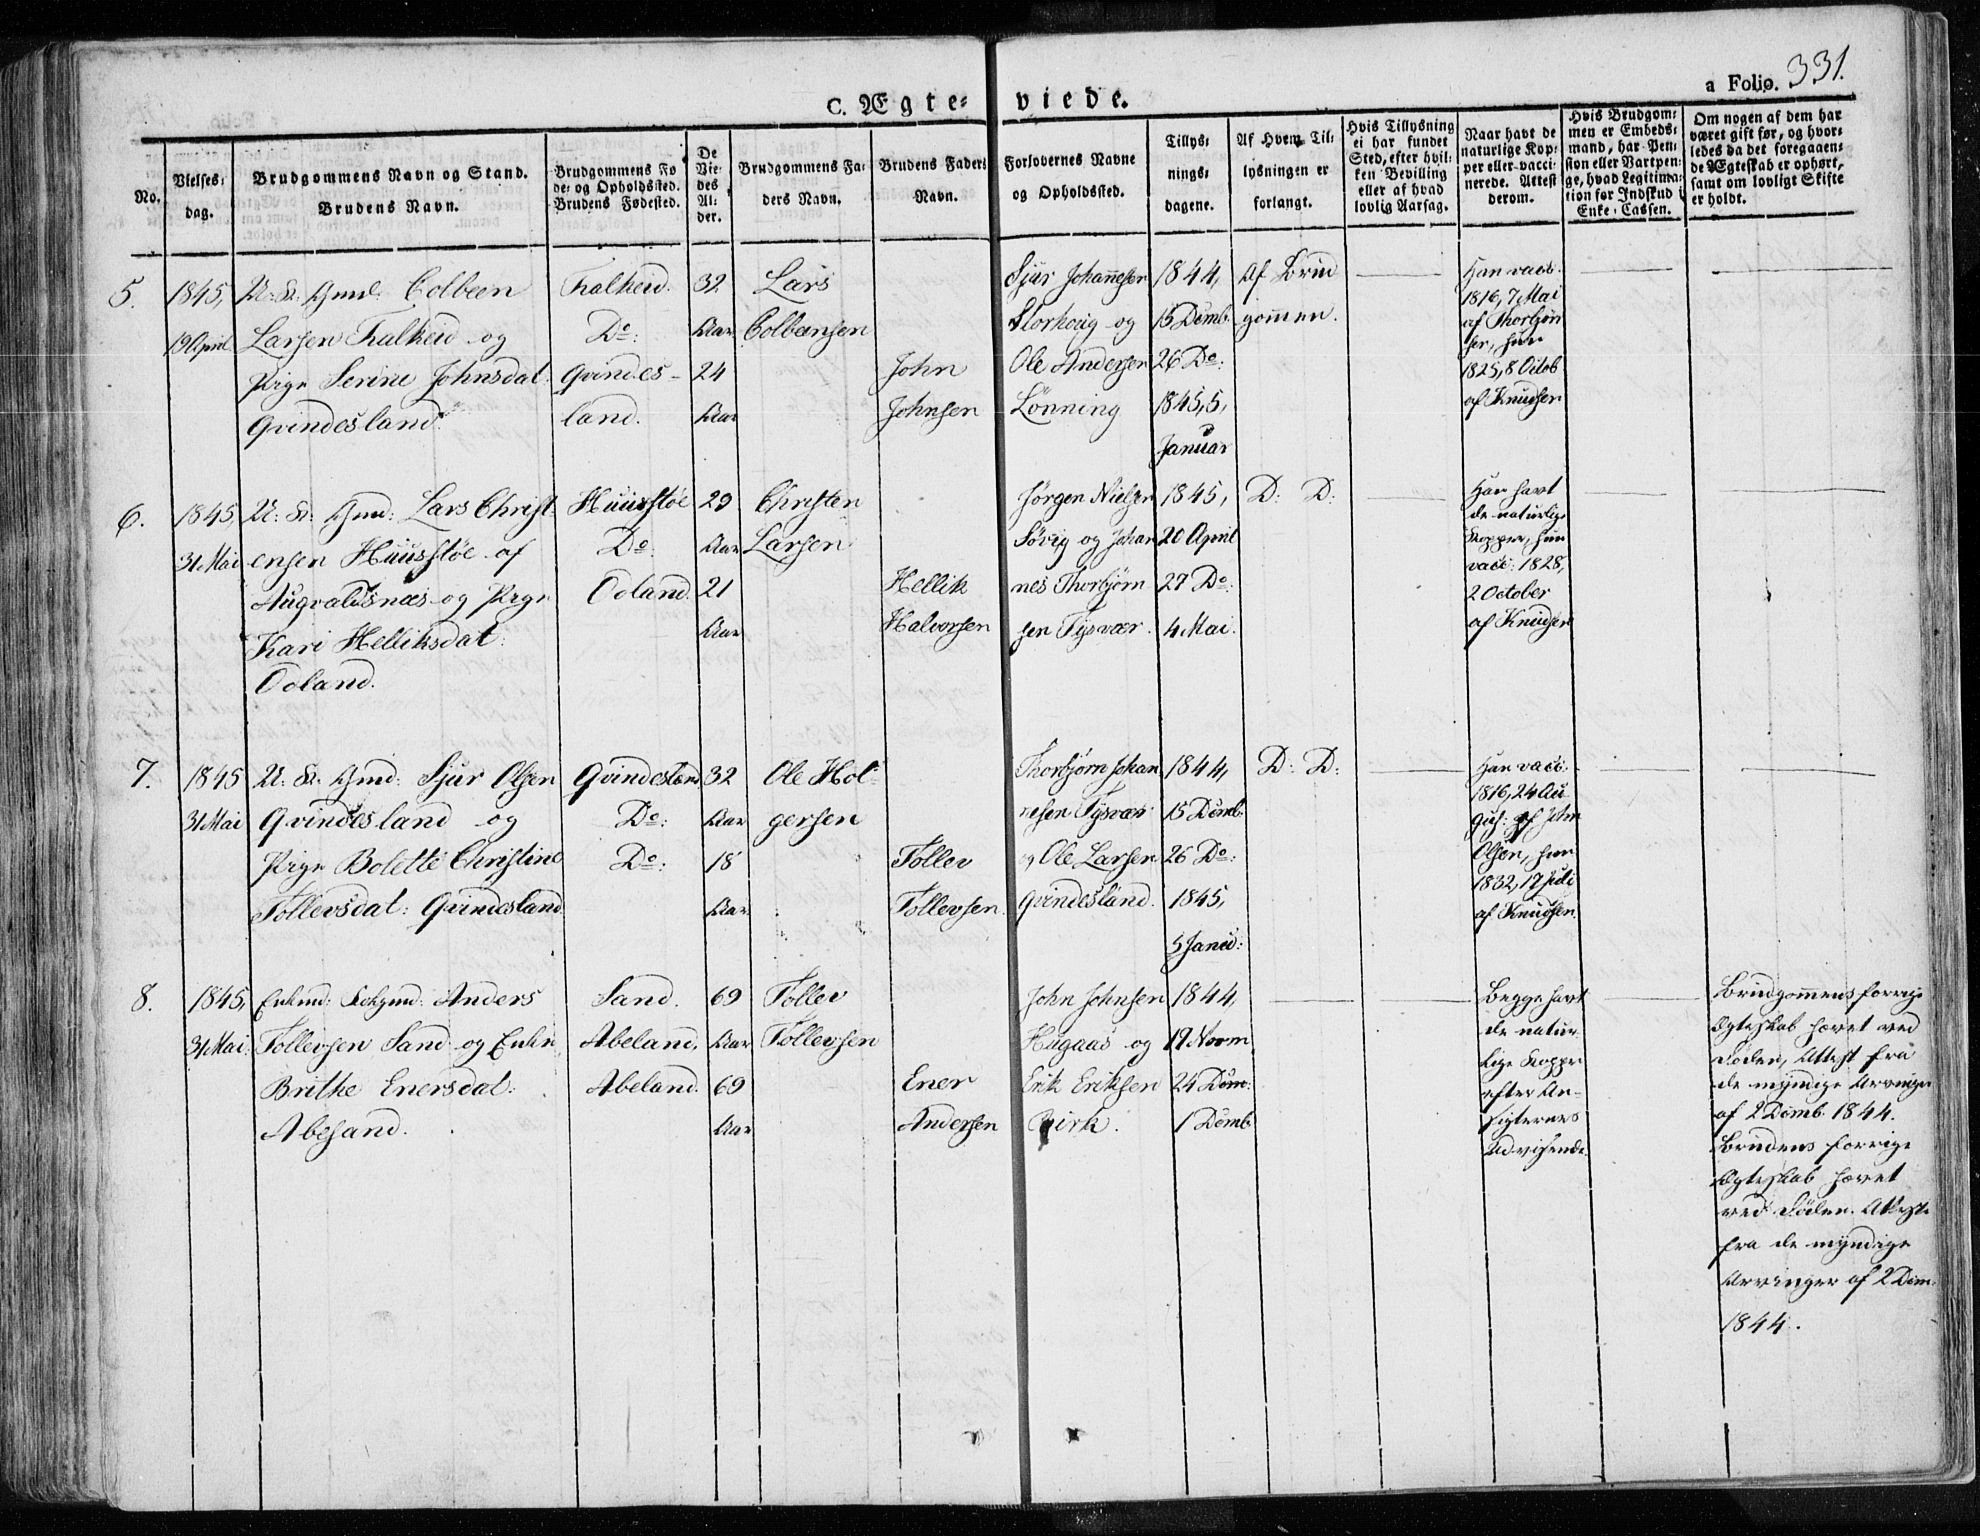 331.
a Folio.
C. Ægte-viede.
No.
Vielses-
dag.
Brudgommens Navn og Stand.
Brudens Navn.
Brudgommens Fø
de- og Opholdssted.
Brudens Fødested.
De
Vie-
des
Al-
der.
Brudgommens Fa-
ders Navn.
Brudens Faders
Navn.
Forlovernes Navne
og Opholdssted.
Tillys-
nings-
dagene.
Af Hvem Til-
lysningen er
forlangt.
Hvis Tillysning
ei har fundet
Sted, efter hvil-
ken Bevilling
eller af hvad
lovlig Aarsag.
Naar havt de
naturlige Kop-
per eller vacci-
nerede. Attest
derom.
Hvis Brudgom-
men er Embeds-
mand, har Pen-
sion eller Vartpen-
ge, hvad Legitima-
tion for Indskud i
Enke-Cassen.
Om nogen af dem har
været gift før, og hvor-
ledes da det foregaaen-
de Ægteskab er ophørt,
samt om lovligt Skifte
er holdt.
5.
1845,
19 April
U: K: Gmd: Colbeen
Larsen Falkeid og
Pige Serine Johnsdat:
Qvindesland.
Falkeid.
Do:
Qvindes-
land.
32
Aar
24
Aar
Lars
Colbænsen
John
Johnsen
Sjur Johannesen
Storhoug og
Ole Andersen
Lønning
1844,
15 Decmb.
26 Do:
1845, 5,
Januar
Af Brud
gommen.
Han vacc:
1816, 7 Mai
af Thorbjørn
sen, hun
1825, 8 Octob
af Knudsen
6.
1845,
31 Mai
U: K: Gmd: Lars Christ-
ensen Huusstøe af
Augvaldsnæs og Pige
Kari Helliksdat:
Odland.
Huusstøe
Do
Odland.
29
Aar
21
Aar
Christen
Larsen
Hellik
Halvorsen
Jørgen Nielsen
Søvig og Johan
nes Thorbjørn
sen Tysvær.
1845,
20 April
27 Do:
4 Mai.
D: D:
Han havt
de naturlige
Kopper, hun
vacc: 1828,
2 October
af Knudsen
7.
1845
31 Mai
U: K: Gmd: Sjur Olsen
Qvindesland og
Pige Bolette Christine
Tollevsdat: Qvindesland
Qvindesland
Do:
Do:
32
Aar
18
Aar
Ole Hol-
gersen
Tollev
Tollevsen.
Thorbjørn Johan
nesen Tysvær
og Ole Larsen
Qvindesland.
1844,
15 Decmb
26 Do:
1845,
5 Janu:
D: D:
Han vacc:
1816, 24 Au
gus: af John
Olsen, hun
1832, 17 Juli
af Knudsen
8.
1845,
31 Mai:
Enkmd: Anders
Tollevsen Sand og Enke
Brithe Enersdat:
Abeland.
Sand.
Abeland,
Abeland.
69
Aar
69
Aar
Tollev
Tollevsen
Ener
Andersen
John Johnsen
Hugaas og
Erik Eriksen
Birk.
1844,
19 Novm
24 Do:
1 Decmb
Begge havt
de natur
lige Kopper
efter An-
sigternes
Udvisende.
Brudgommens forrige
Ægteskab hævet ved
Døden, Attest fra
de myndige Arvinger
af 2 Decmb. 1844.
Brudens forrige
Ægteskab hævet
ved Døden. Attest
fra de myndige
Arvinger af 2 Decm.
1844.